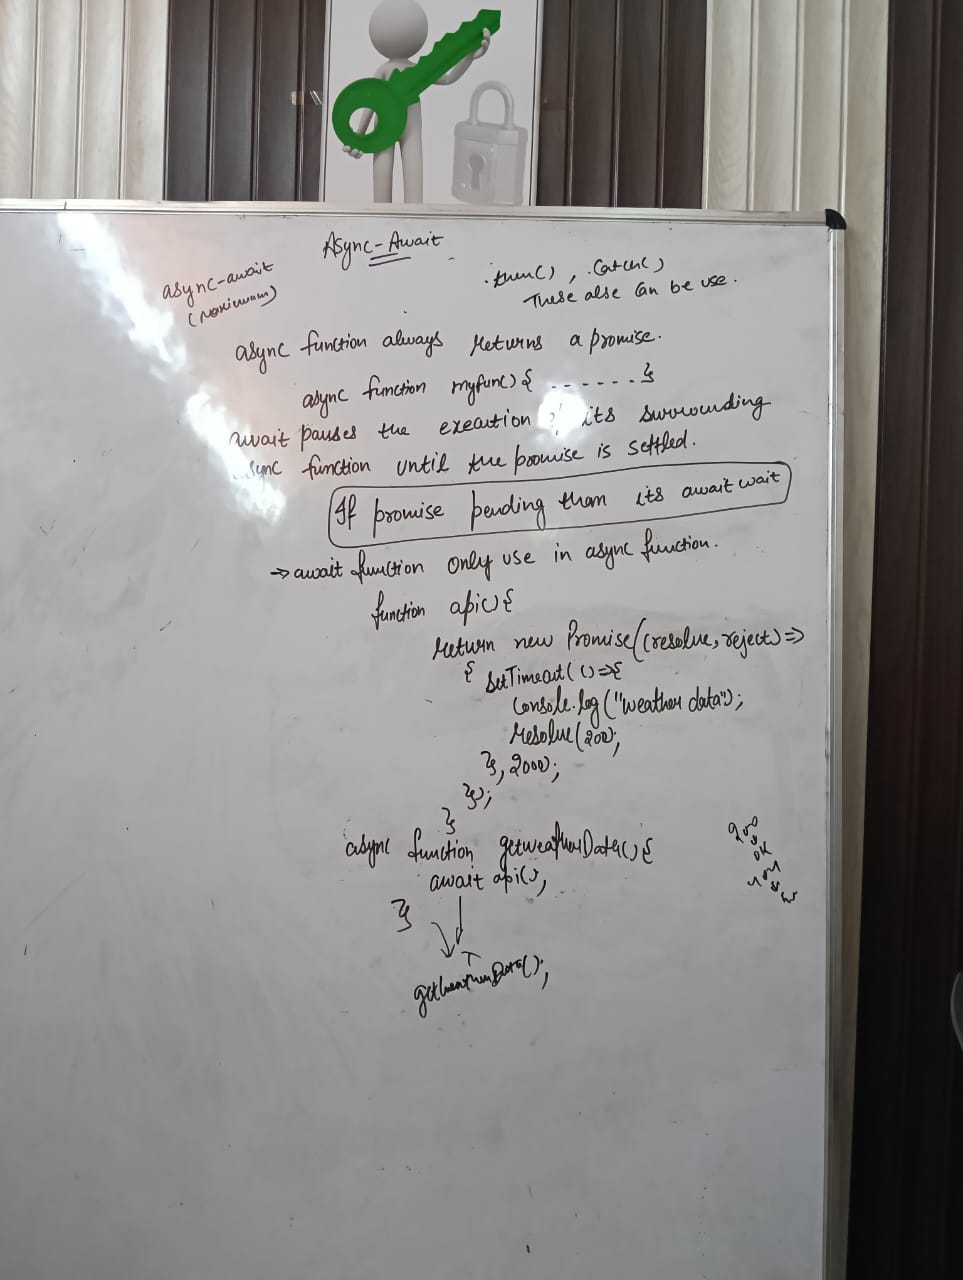 Async-Await
async-await
(maximum)
.then() , .Catch()
These also Can be use.
async function always returns a promise.
async function myfunc() { ...... }
await pauses the execution its surrounding
sync function until the promise is settled.
If promise pending than its await wait
⇒ await function only use in async function.
function api() {
return new Promise((resolve, reject) =>
{ SetTimeout(() => {
Console.log("weather data");
resolve(200);
}, 2000);
});
}
async function getweatherData() {
await api();
}
getweatherData();
200
OK